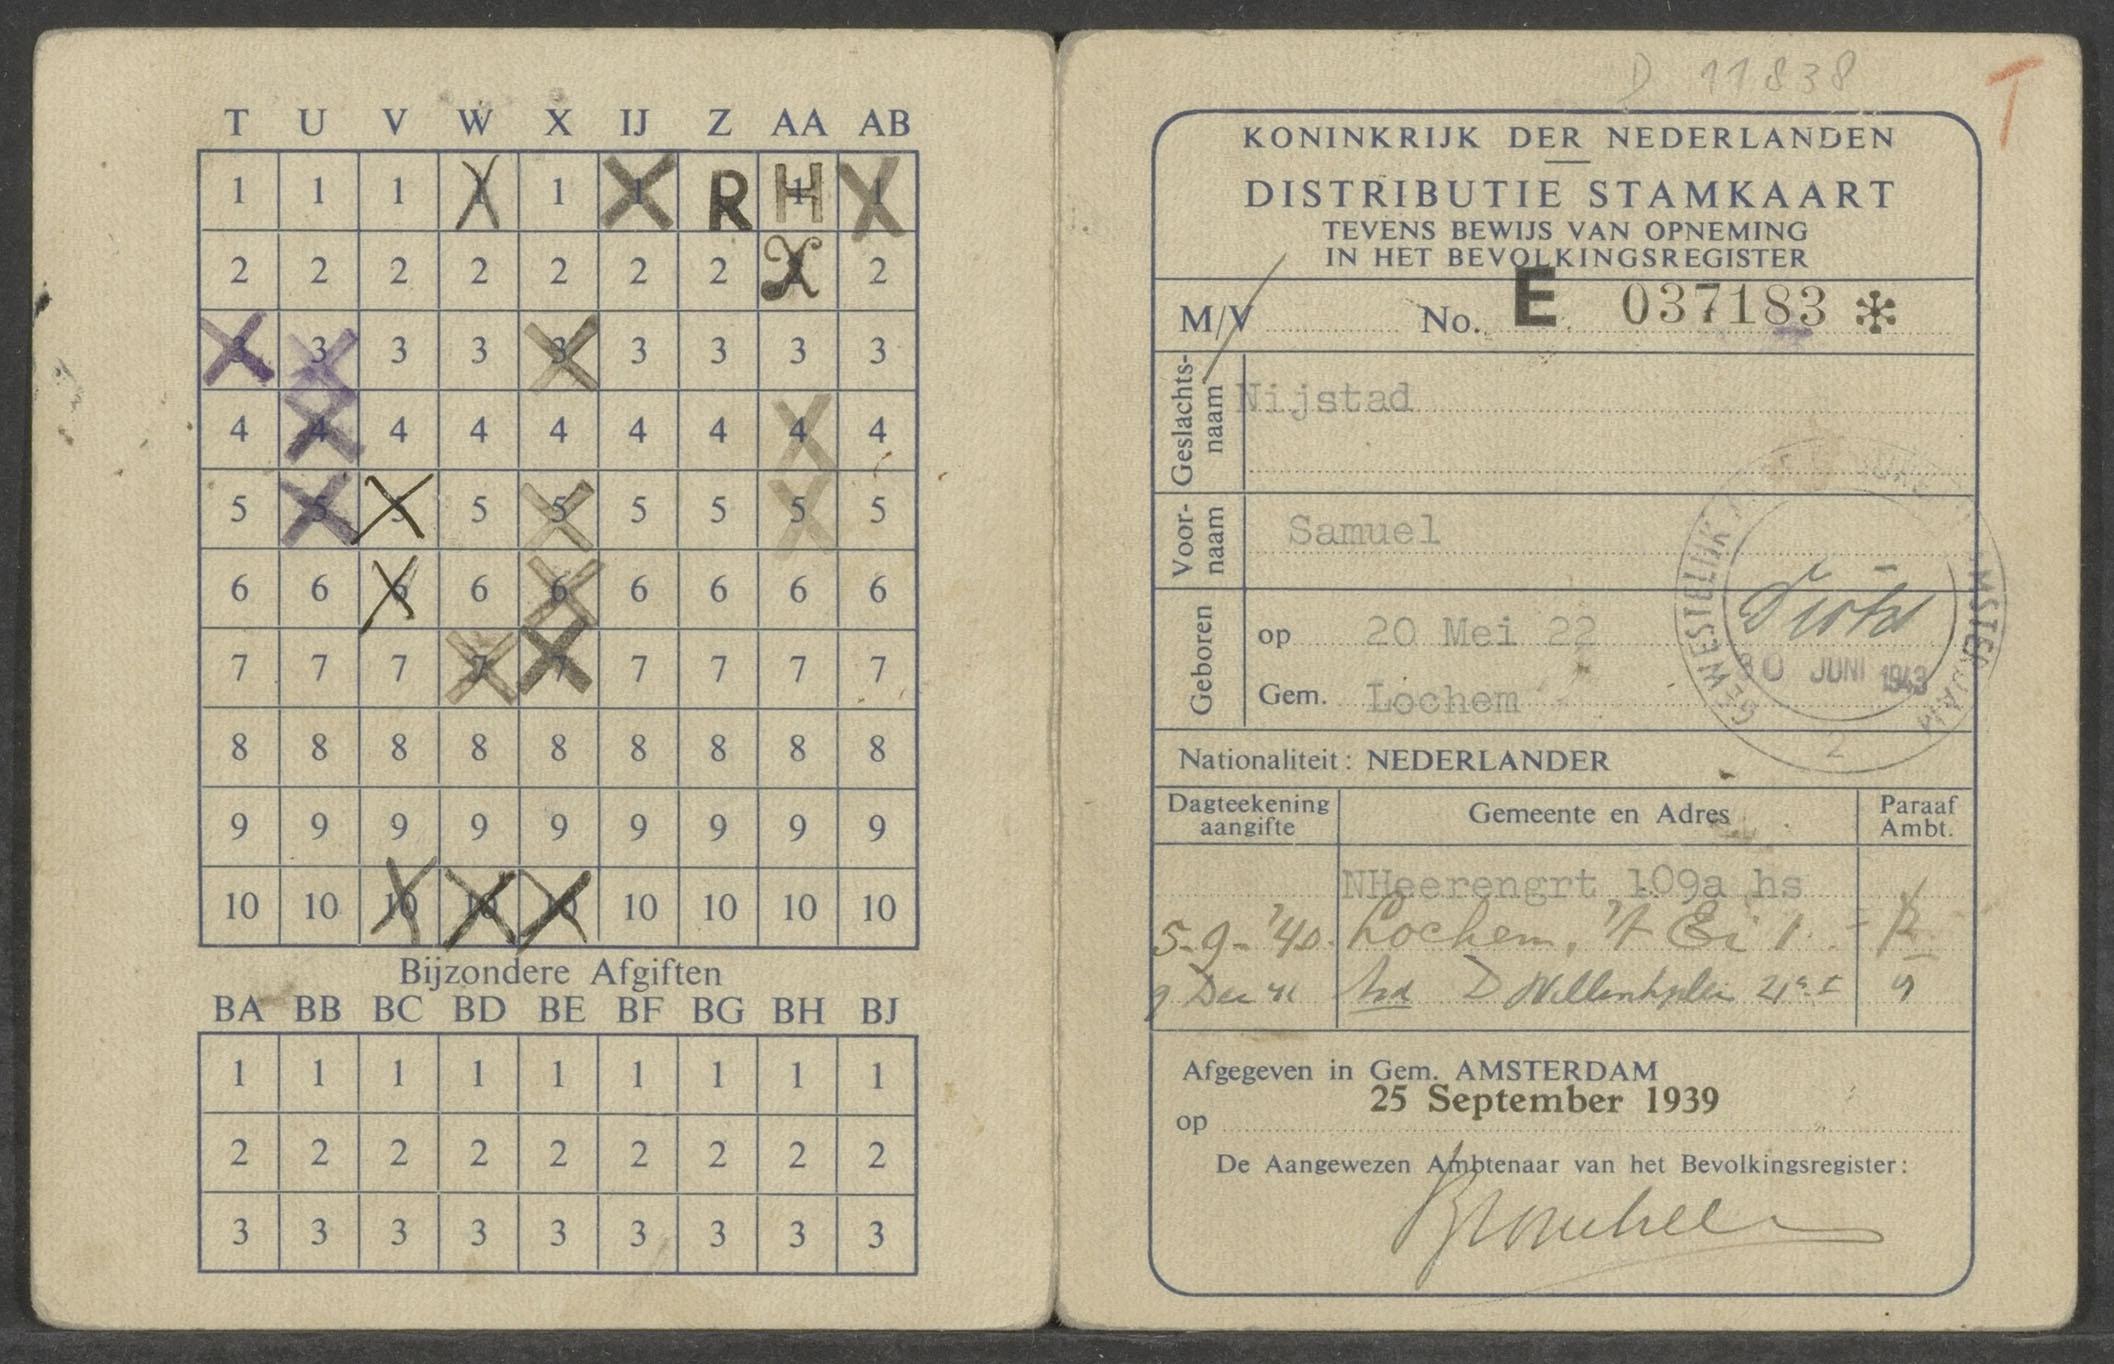 T U V W X IJ Z AA AB
1 1 1 1 1 1 R H 1
2 2 2 2 2 2 2 2 2
3 3 3 3 3 3 3 3 3
4 4 4 4 4 4 4 4 4
5 5 5 5 5 5 5 5 5
6 6 6 6 6 6 6 6 6
7 7 7 7 7 7 7 7 7
8 8 8 8 8 8 8 8 8
9 9 9 9 9 9 9 9 9
10 10 10 10 10 10 10 10 10
Bijzondere Afgiften
BA BB BC BD BE BF BG BH BJ
1 1 1 1 1 1 1 1 1
2 2 2 2 2 2 2 2 2
3 3 3 3 3 3 3 3 3
D 11838 T
KONINKRIJK DER NEDERLANDEN
DISTRIBUTIE STAMKAART
TEVENS BEWIJS VAN OPNEMING
IN HET BEVOLKINGSREGISTER
M/V No. E 037183 *
Geslachts-
naam
Nijstad
Voor-
naam
Samuel
Geboren
op 20 Mei 22
Gem. Lochem
GEWESTELIJK AMSTERDAM
30 JUNI 1943
2
Nationaliteit: NEDERLANDER
Dagteekening
aangifte
Gemeente en Adres
Paraaf
Ambt.
NHeerengrt 109a hs
5-9-'40. Lochem, 't Ei 1. -
9 Dec 41 Asd D Willinkplein 21
Afgegeven in Gem. AMSTERDAM
25 September 1939
op
De Aangewezen Ambtenaar van het Bevolkingsregister: